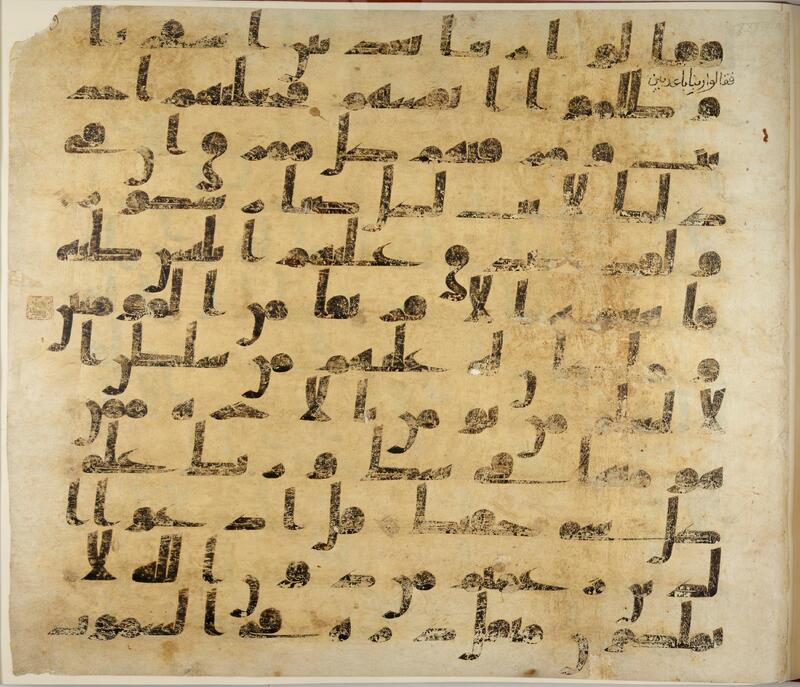 فقالوا ربنا بعد بين اسفرنا
فقالوا ربنا باعد بين
و ظلموا انفسهم فجعلنهم احد
يث و مزقنهم كل ممزق ان في
ذلك لايت لكل صبار شكور
و لقد صدق عليهم ابليس ظنه
فاتبعوه الا فريقا من المومنين
و ما كان له عليهم من سلطن ا
لا لنعلم من يومن بالاخره ممن
هو منها في شك و ربك على
كل شي حفيظ قل ادعوا ا
لذين زعمتم من دون الله لا
يملكون مثقل ذره في السموت